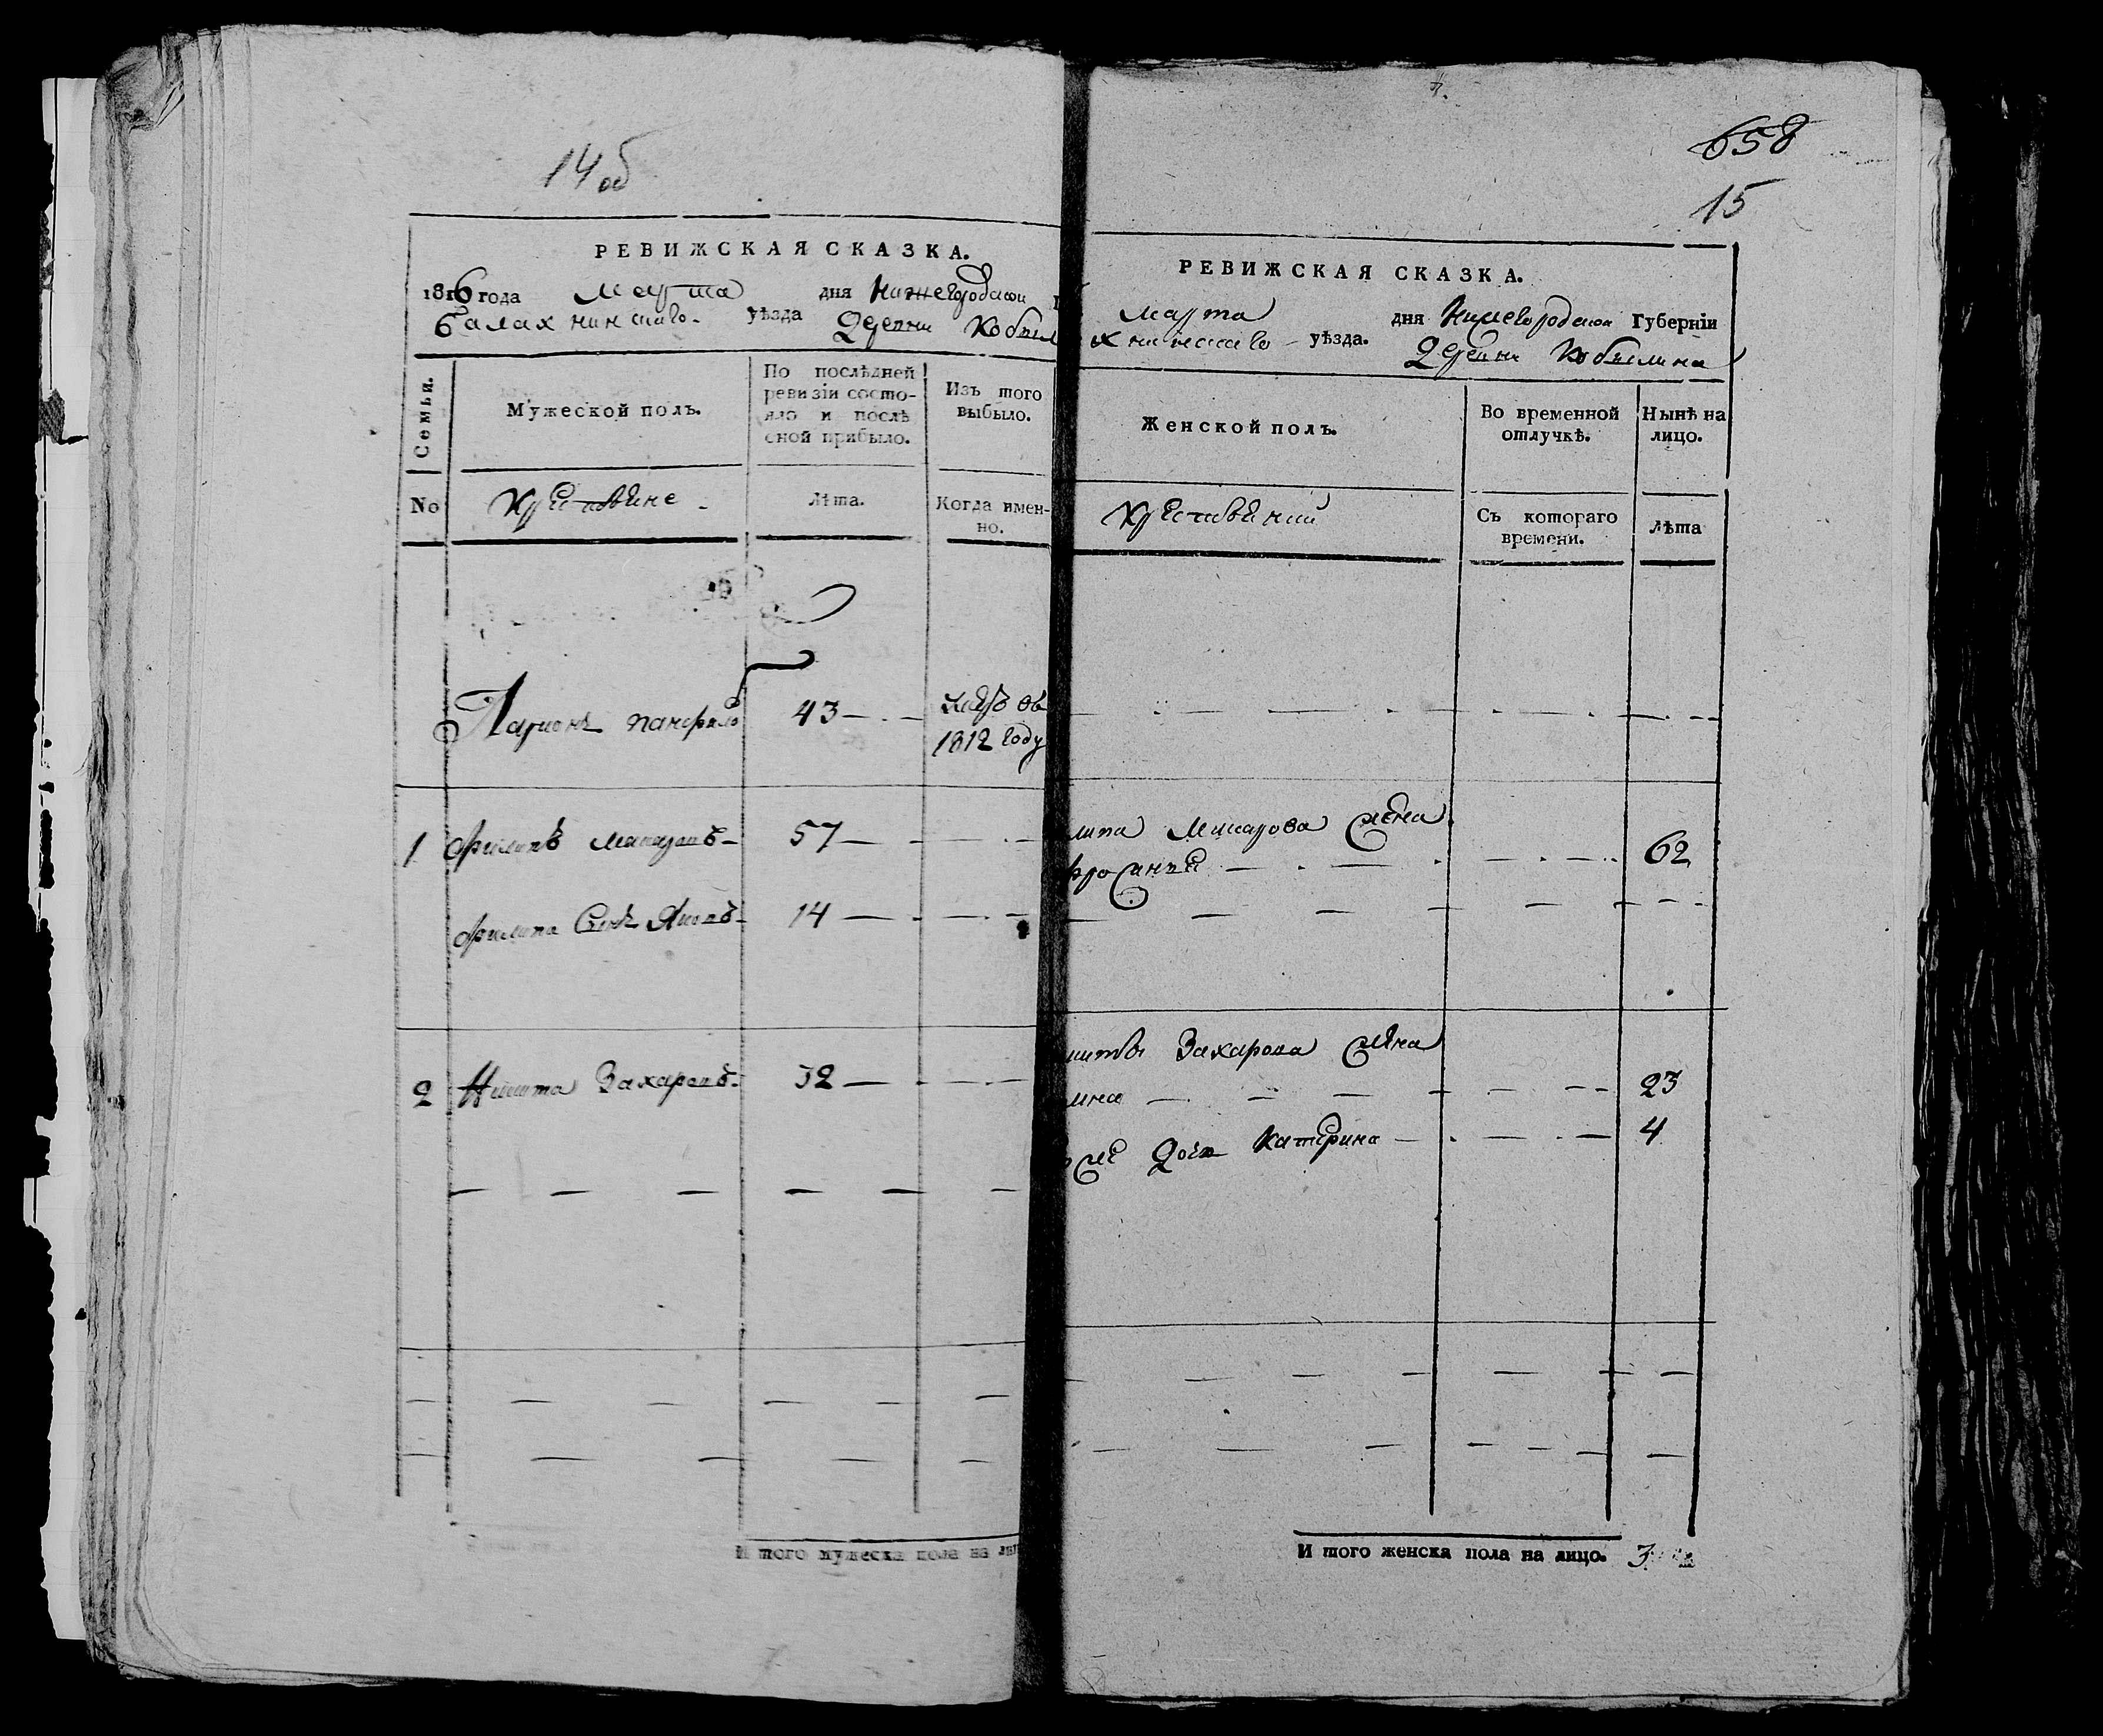 14 об
РЕВИЖСКАЯ СКАЗКА.
1816 года Марта дня Нижегородской
Балахнинскаго уѣзда Деревни Кобыл
Семьи.
Мужеской полъ.
По послѣдней ревизіи состояло и послѣ оной прибыло.
Изъ того выбыло.
No
Крестьяне
Лѣта.
Когда именно.
Ларионъ Панфилов 43 умре въ
1812 году
1 Филипъ Макаровъ 57
Филипа сынъ Яковъ 14
2 Никита Захаровъ 32
И того мужеска пола на ли
658
15
РЕВИЖСКАЯ СКАЗКА.
Марта дня Нижегородской Губерніи
хнинскаго уѣзда. Деревни Кобылина
Женской полъ.
Во временной отлучкѣ.
Нынѣ на лицо.
Съ котораго времени.
Лѣта
липа Макарова жена
фросинья 62
киты Захарова жена
23
дочь Катерина 4
И того женска пола на лицо. 3